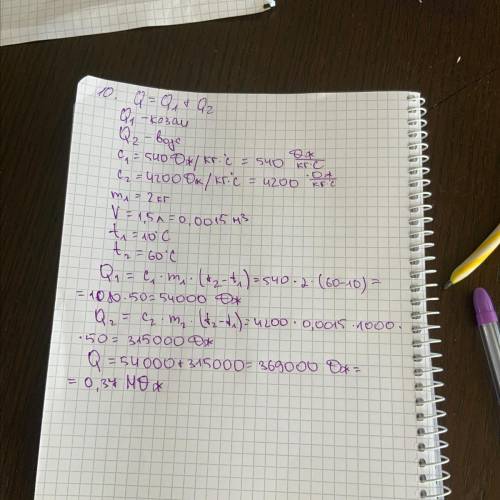 10. Q = Q₁ + Q₂
Q₁ - казан
Q₂ - воде
c₁ = 540 Дж/кг·°C = 540 Дж/кг·°C
c₂ = 4200 Дж/кг·°C = 4200 Дж/кг·°C
m₁ = 2 кг
V = 1,5 л = 0,0015 м³
t₁ = 10°C
t₂ = 60°C
Q₁ = c₁ · m₁ · (t₂ - t₁) = 540 · 2 · (60 - 10) =
= 1080 · 50 = 54000 Дж
Q₂ = c₂ · m₂ · (t₂ - t₁) = 4200 · 0,0015 · 1000 ·
· 50 = 315000 Дж
Q = 54000 + 315000 = 369000 Дж =
= 0,37 МДж